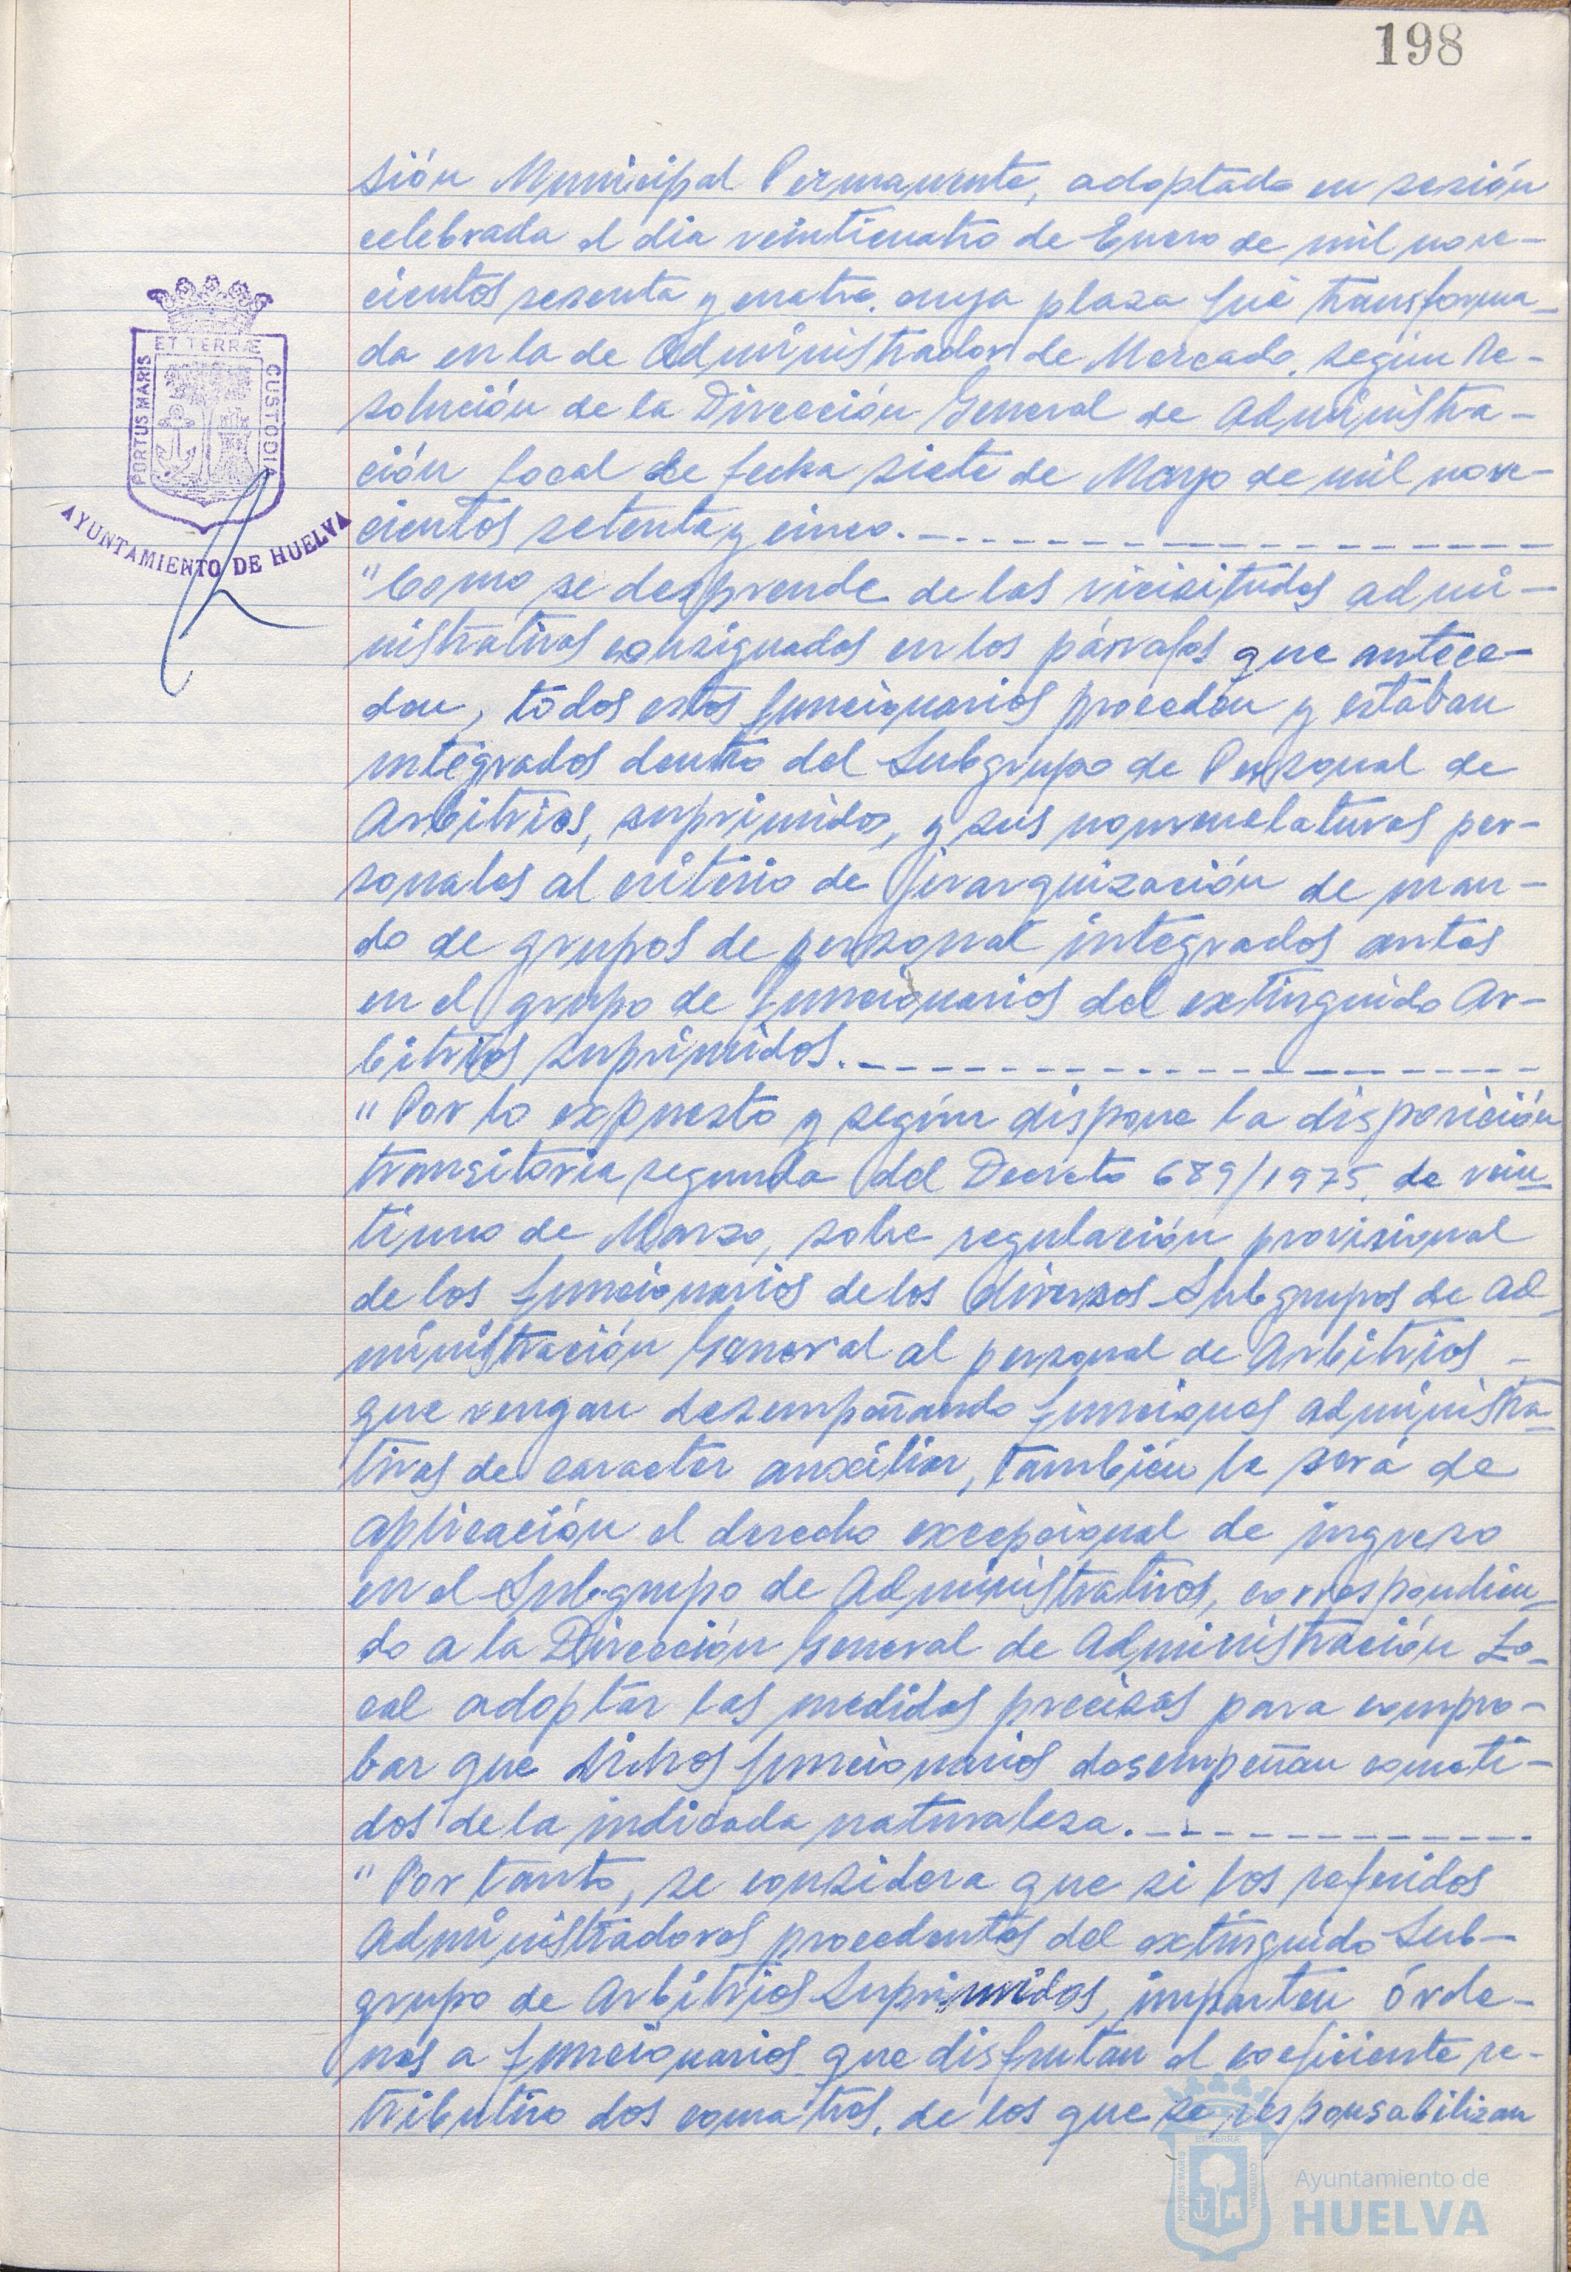 198
sión Municipal Permanente, adoptado en sesión
celebrada el dia veinticuatro de Enero de mil nove-
cientos sesenta y cuatro, cuya plaza fué transforma-
da en la de Administrador de Mercado, según Re-
solución de la Dirección General de Administra-
ción Local de fecha siete de Mayo de mil nove-
cientos setenta y cinco.
"Como se desprende de las vicisitudes admi-
nistrativas consignadas en los párrafos que antece-
den, todos estos funcionarios proceden y estaban
integrados dentro del Subgrupo de Personal de
Arbitrios, suprimido, y sus nomenclaturas per-
sonales al criterio de jerarquización de man-
do de grupos de personal integrados antes
en el grupo de funcionarios del extinguido Ar-
bitrios suprimidos.
"Por lo expuesto y según dispone la disposición
transitoria segunda del Decreto 689/1975, de vein-
tiuno de Marzo, sobre regulación provisional
de los funcionarios de los diversos Subgrupos de Ad-
ministración General al personal de Arbitrios -
que vengan desempeñando funciones administra-
tivas de caracter auxiliar, también le será de
aplicación el derecho excepcional de ingreso
en el Subgrupo de Administrativos, correspondien-
do a la Dirección General de Administración Lo-
cal adoptar las medidas precisas para compro-
bar que dichos funcionarios desempeñan cometi-
dos de la indicada naturaleza.
"Por tanto, se considera que si los referidos
Administradores procedentes del extinguido Sub-
grupo de Arbitrios Suprimidos, imparten órde-
nes a funcionarios que disfrutan el coeficiente re-
tributivo dos coma tres, de los que se responsabilizan
PORTUS MARIS
ET TERRÆ
CUSTODIA
AYUNTAMIENTO DE HUELVA
PORTUS MARIS
ET TERRÆ
CUSTODIA
Ayuntamiento de
HUELVA